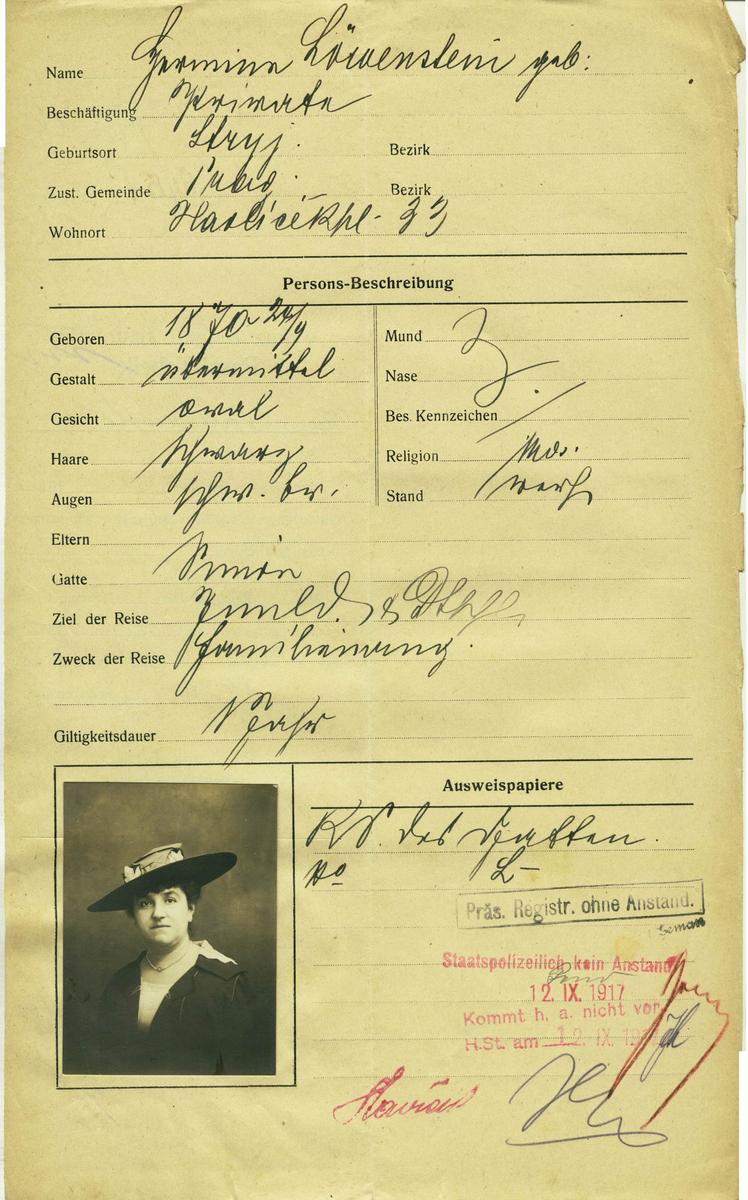 Name Hermine Löwenstein geb:
Beschäftigung Private
Geburtsort Stryj. Bezirk
Zust. Gemeinde Prag. Bezirk
Wohnort Havlíčekpl. 33
Persons-Beschreibung
Geboren 1870 24/9 Mund
Gestalt übermittel Nase
Gesicht oval Bes. Kennzeichen /
Haare schwarz Religion mos.
Augen schw. br. Stand verh
Eltern
Gatte Simon
Ziel der Reise Innld. &
Zweck der Reise
Giltigkeitsdauer 1 Jahr
Ausweispapiere
des Gatten.
Präs. Registr. ohne Anstand.
Staatspolizeilich kein Anstand
12. IX. 1917
Kommt h. a. nicht vor
H.St. am 12. IX.